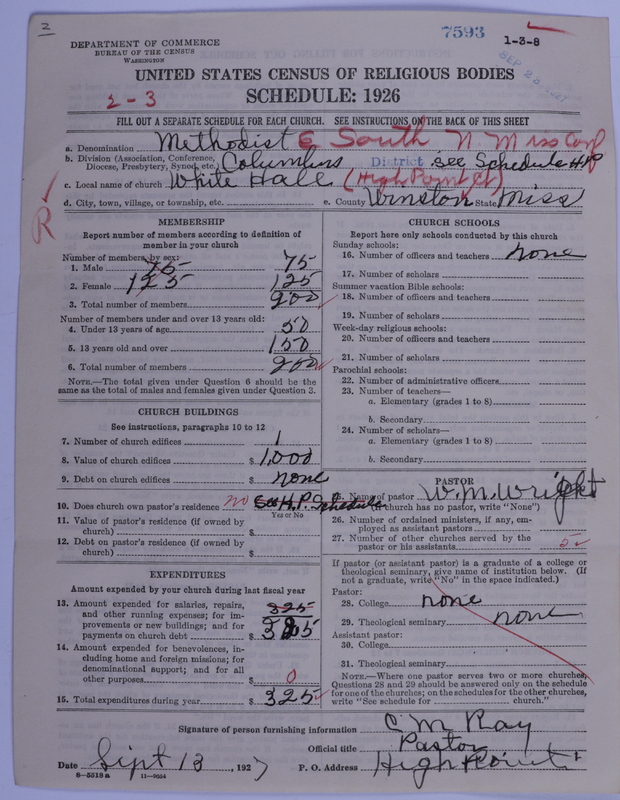 2
7593
1-3-8
DEPARTMENT OF COMMERCE
BUREAU OF THE CENSUS
WASHINGTON
UNITED STATES CENSUS OF RELIGIOUS BODIES
2-3
SCHEDULE: 1926
FILL OUT A SEPARATE SCHEDULE FOR EACH CHURCH. SEE INSTRUCTIONS ON THE BACK OF THIS SHEET
a. Denomination Methodist E South N. Miss Conf
b. Division (Association, Conference, Diocese, Presbytery, Synod, etc.) Columbus District see Schedule H.P.
c. Local name of church White Hall (High Point Ct)
R
d. City, town, village, or township, etc. e. County Winston State Miss
MEMBERSHIP
Report number of members according to definition of member in your church
Number of members by sex:
1. Male 75 75
2. Female 125 125
3. Total number of members 200
Number of members under and over 13 years old:
4. Under 13 years of age 50
5. 13 years old and over 150
6. Total number of members 200
NOTE.—The total given under Question 6 should be the same as the total of males and females given under Question 3.
CHURCH BUILDINGS
See instructions, paragraphs 10 to 12
7. Number of church edifices 1
8. Value of church edifices $ 1,000
9. Debt on church edifices $ none
10. Does church own pastor's residence no See H.P. Schedule
Yes or No
11. Value of pastor's residence (if owned by church) $
12. Debt on pastor's residence (if owned by church) $
EXPENDITURES
Amount expended by your church during last fiscal year
13. Amount expended for salaries, repairs, and other running expenses; for improvements or new buildings; and for payments on church debt $ 325
14. Amount expended for benevolences, including home and foreign missions; for denominational support; and for all other purposes $ 0
15. Total expenditures during year $ 325
CHURCH SCHOOLS
Report here only schools conducted by this church
Sunday schools:
16. Number of officers and teachers none
17. Number of scholars
Summer vacation Bible schools:
18. Number of officers and teachers
19. Number of scholars
Week-day religious schools:
20. Number of officers and teachers
21. Number of scholars
Parochial schools:
22. Number of administrative officers
23. Number of teachers—
a. Elementary (grades 1 to 8)
b. Secondary
24. Number of scholars—
a. Elementary (grades 1 to 8)
b. Secondary
PASTOR
25. Name of pastor W. M. Wright
(If church has no pastor, write "None")
26. Number of ordained ministers, if any, employed as assistant pastors
27. Number of other churches served by the pastor or his assistants
If pastor (or assistant pastor) is a graduate of a college or theological seminary, give name of institution below. (If not a graduate, write "No" in the space indicated.)
Pastor:
28. College none
29. Theological seminary none
Assistant pastor:
30. College
31. Theological seminary
NOTE.—Where one pastor serves two or more churches, Questions 28 and 29 should be answered only on the schedule for one of the churches; on the schedules for the other churches, write "See schedule for church."
Signature of person furnishing information C M Ray
Official title Pastor
Date Sept 13, 1927 P. O. Address High Point
8-5518a 11-9554